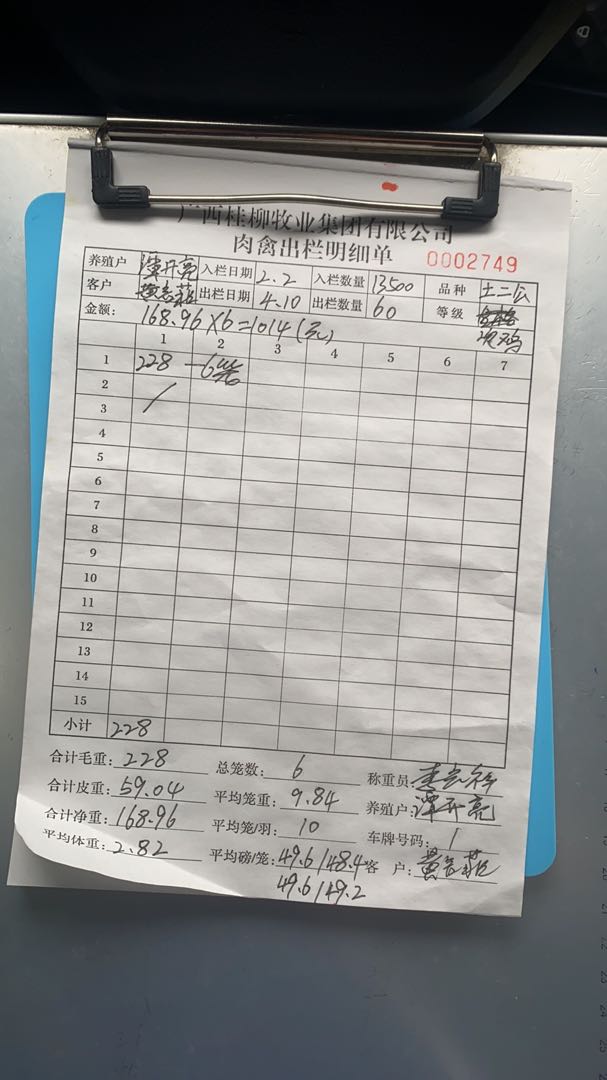 广西桂柳牧业集团有限公司
肉禽出栏明细单 0002749
养殖户 谭开亮 入栏日期 2.2 入栏数量 13500 品种 土二公
客户 出栏日期 4.10 出栏数量 60 等级 项鸡
金额: 168.96×6=1014(元)
1 2 3 4 5 6 7
1 228 -6笼
2
3 /
4
5
6
7
8
9
10
11
12
13
14
15
小计 228
合计毛重: 228 总笼数: 6 称重员:
合计皮重: 59.04 平均笼重: 9.84 养殖户: 谭开亮
合计净重: 168.96 平均笼/羽: 10 车牌号码: 1
平均体重: 2.82 平均磅/笼: 49.6/48.4 客 户:
49.6/49.2